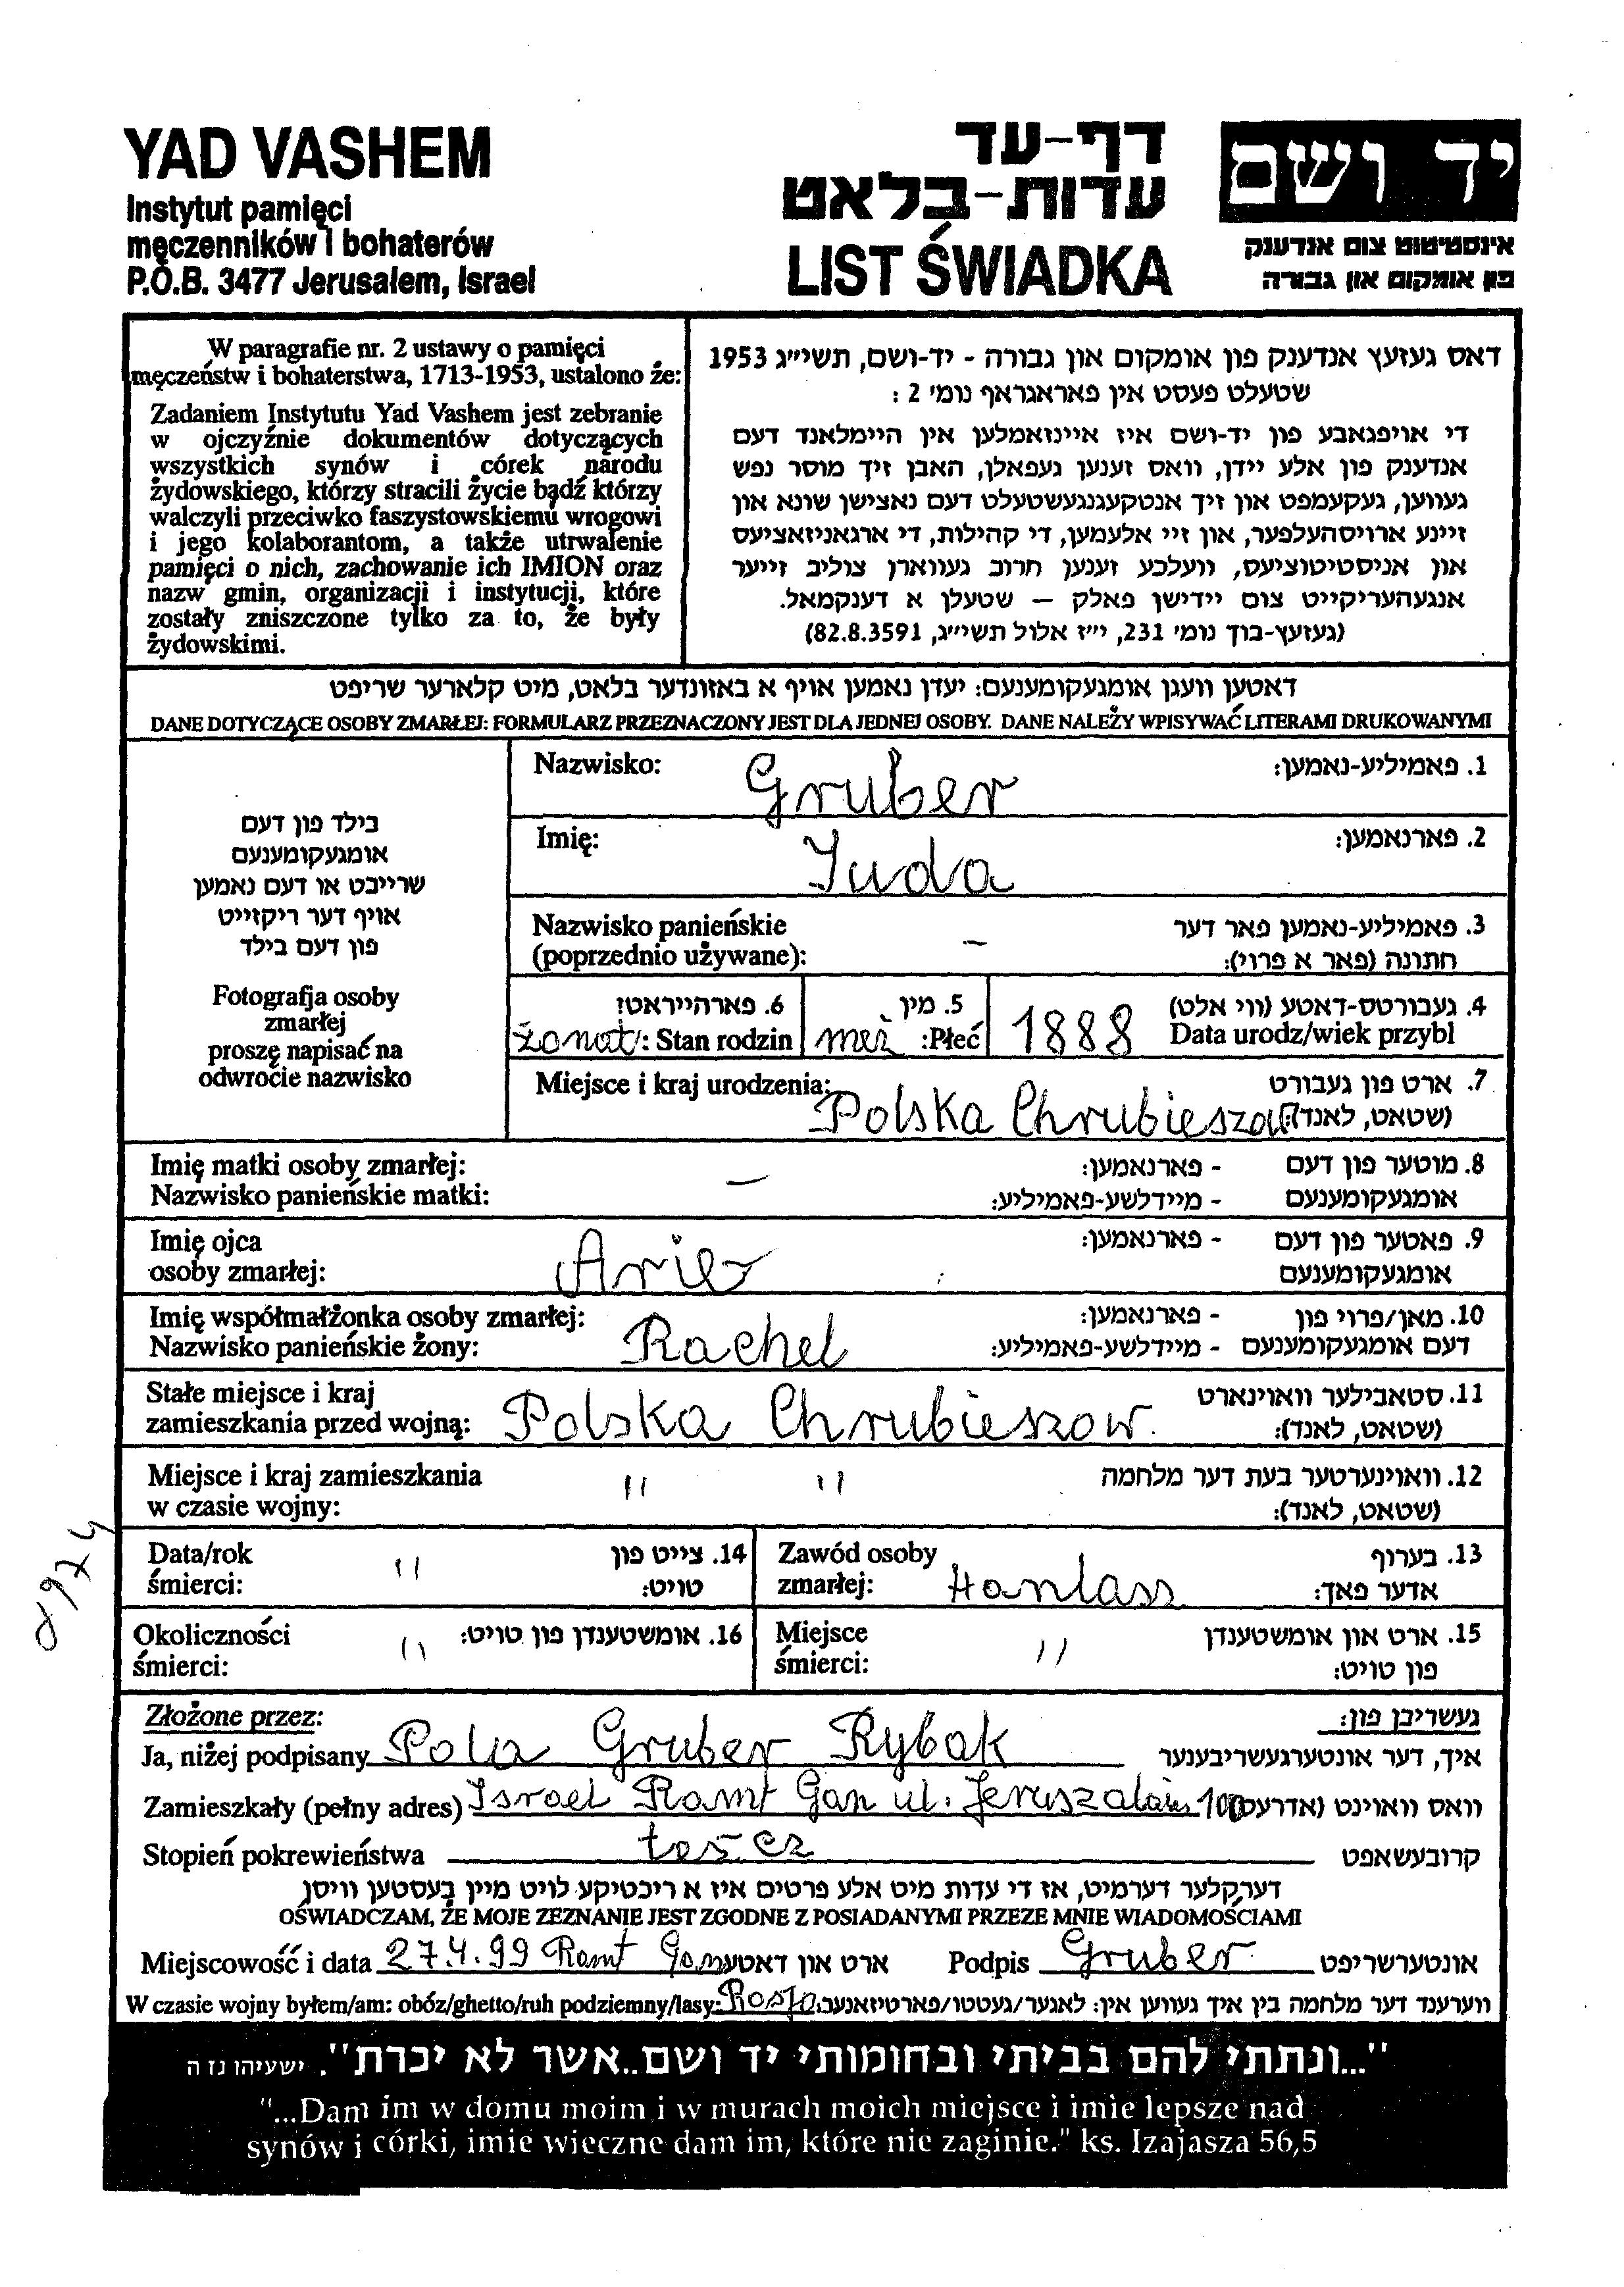 YAD VASHEM
Instytut pamięci
męczenników i bohaterów
P.O.B. 3477 Jerusalem, Israel
דף-עד
עדות-בלאט
LIST ŚWIADKA
יד ושם
אינסטיטוט צום אנדענק
פון אומקום און גבורה
W paragrafie nr. 2 ustawy o pamięci
męczeństw i bohaterstwa, 1713-1953, ustalono że:
Zadaniem Instytutu Yad Vashem jest zebranie
w ojczyźnie dokumentów dotyczących
wszystkich synów i córek narodu
żydowskiego, którzy stracili życie bądź którzy
walczyli przeciwko faszystowskiemu wrogowi
i jego kolaborantom, a także utrwalenie
pamięci o nich, zachowanie ich IMION oraz
nazw gmin, organizacji i instytucji, które
zostały zniszczone tylko za to, że były
żydowskimi.
דאס געזעץ אנדענק פון אומקום און גבורה - יד-ושם, תשי״ג 1953
שטעלט פעסט אין פאראגראף נומי 2 :
די אויפגאבע פון יד-ושם איז איינזאמלען אין היימלאנד דעם
אנדענק פון אלע יידן, וואס זענען געפאלן, האבן זיך מוסר נפש
געווען, געקעמפט און זיך אנטקעגנגעשטעלט דעם נאצישן שונא און
זיינע ארויסהעלפער, און זיי אלעמען, די קהילות, די ארגאניזאציעס
און אניסטיטוציעס, וועלכע זענען חרוב געווארן צוליב זייער
אנגעהעריקייט צום יידישן פאלק – שטעלן א דענקמאל.
(געזעץ-בוך נומי 231, י״ז אלול תשי״ג, 82.8.3591)
דאטען וועגן אומגעקומענעם: יעדן נאמען אויף א באזונדער בלאט, מיט קלארער שריפט
DANE DOTYCZĄCE OSOBY ZMARŁEJ: FORMULARZ PRZEZNACZONY JEST DLA JEDNEJ OSOBY. DANE NALEŻY WPISYWAĆ LITERAMI DRUKOWANYMI
בילד פון דעם
אומגעקומענעם
שרייבט או דעם נאמען
אויף דער ריקזייט
פון דעם בילד
Fotografja osoby
zmarłej
proszę napisać na
odwrocie nazwisko
Nazwisko: Gruber 1. פאמיליע-נאמען:
Imię: Juda 2. פארנאמען:
Nazwisko panieńskie 3. פאמיליע-נאמען פאר דער
(poprzednio używane): – חתונה (פאר א פרוי):
6. פארהייראט? 5. מין 4. געבורטס-דאטע (ווי אלט)
żonat: Stan rodzin męż :Płeć 1888 Data urodz/wiek przybl
Miejsce i kraj urodzenia: 7. ארט פון געבורט
Polska Chrubieszów (שטאט, לאנד):
Imię matki osoby zmarłej: – - פארנאמען: 8. מוטער פון דעם
Nazwisko panieńskie matki: - מיידלשע-פאמיליע: אומגעקומענעם
Imię ojca - פארנאמען: 9. פאטער פון דעם
osoby zmarłej: Arie אומגעקומענעם
Imię współmałżonka osoby zmarłej: - פארנאמען: 10. מאן/פרוי פון
Nazwisko panieńskie żony: Rachel - מיידלשע-פאמיליע: דעם אומגעקומענעם
Stałe miejsce i kraj 11. סטאבילער וואוינארט
zamieszkania przed wojną: Polska Chrubieszow. (שטאט, לאנד):
Miejsce i kraj zamieszkania " " 12. וואוינערטער בעת דער מלחמה
w czasie wojny: (שטאט, לאנד):
Data/rok " 14. צייט פון Zawód osoby 13. בערוף
śmierci: טויט: zmarłej: אדער פאך:
Okoliczności " 16. אומשטענדן פון טויט: Miejsce " 15. ארט און אומשטענדן
śmierci: śmierci: פון טויט:
Złożone przez: געשריבן פון:
Ja, niżej podpisany Pola Gruber Rybak איך, דער אונטערגעשריבענער
Zamieszkały (pełny adres) Israel Ramt Gan ul. Jeruszalaim 100 וואס וואוינט (אדרעס)
Stopień pokrewieństwa teść קרובעשאפט
דערקלער דערמיט, אז די עדות מיט אלע פרטים איז א ריכטיקע לויט מיין בעסטען וויסן
OŚWIADCZAM, ŻE MOJE ZEZNANIE JEST ZGODNE Z POSIADANYMI PRZEZE MNIE WIADOMOŚCIAMI
Miejscowość i data 27.4.99 Ramt Gan ארט און דאטע Podpis Gruber אונטערשריפט
W czasie wojny byłem/am: obóz/ghetto/ruh podziemny/lasy: Rosja ווערענד דער מלחמה בין איך געווען אין: לאגער/געטטו/פארטיזאנער:
"...ונתתי להם בביתי ובחומותי יד ושם..אשר לא יכרת". ישעיהו נז ה
"...Dam im w domu moim i w murach moich miejsce i imie lepsze nad
synów i córki, imie wieczne dam im, które nie zaginie." ks. Izajasza 56,5